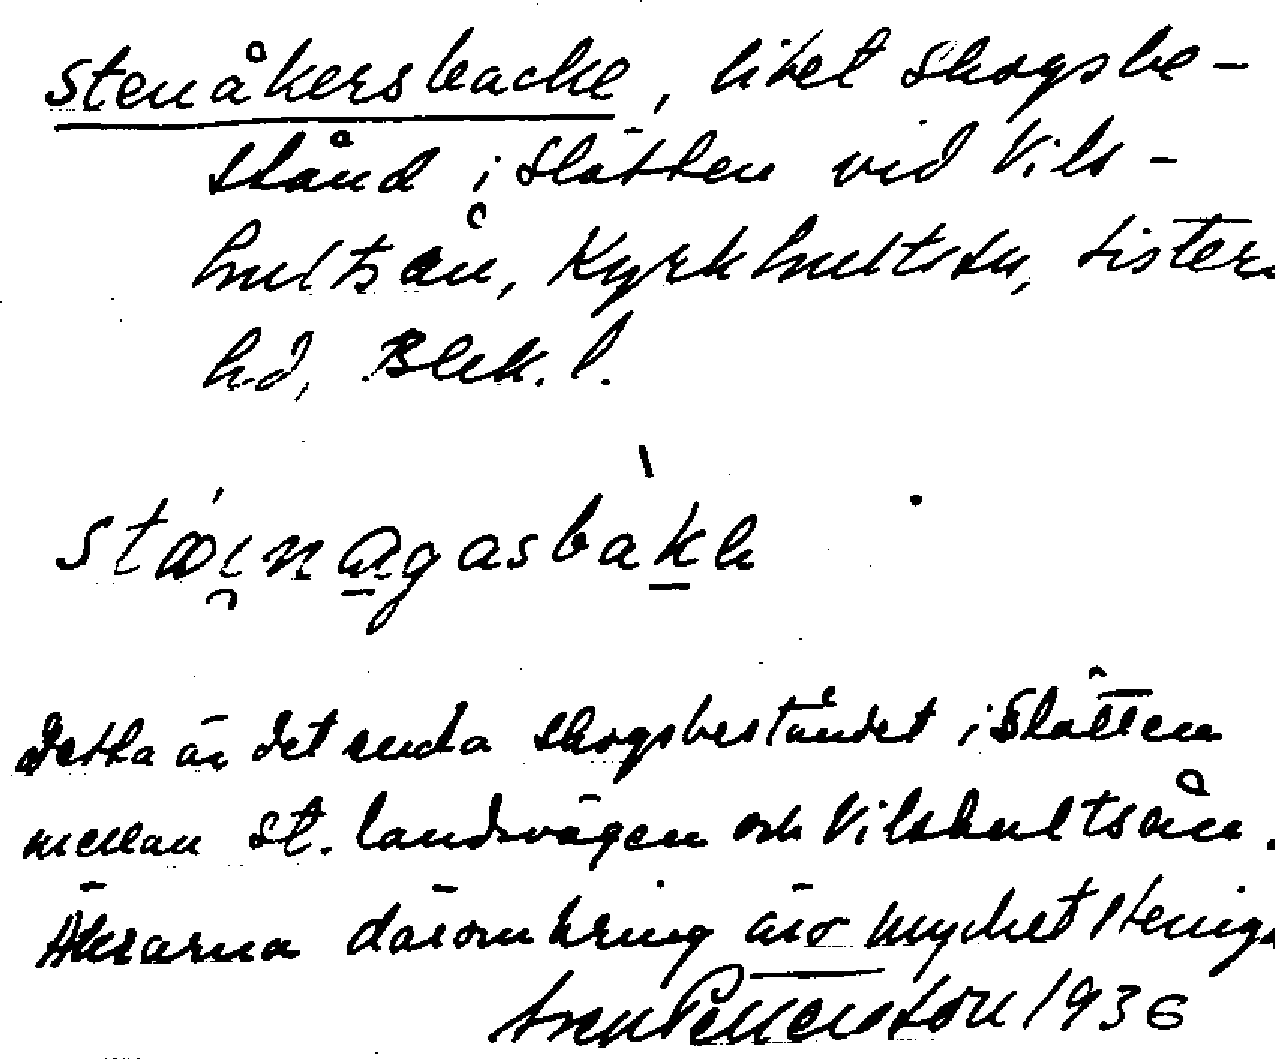 Stenåkersbacke, litet skogsbe-
stånd i Slätten vid Vils-
hultsån, Kyrkhults sn, Listers
hd, Blek. l.
Detta är det enda skogsbeståndet i Slätten
mellan st. landsvägen och Vilshultsån.
Åkrarna däromkring äro mycket steniga
1936